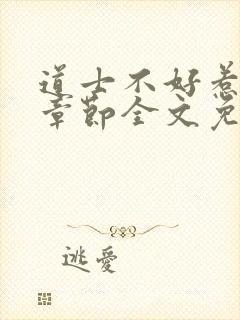 道士不好惹
章節全文免
逃愛